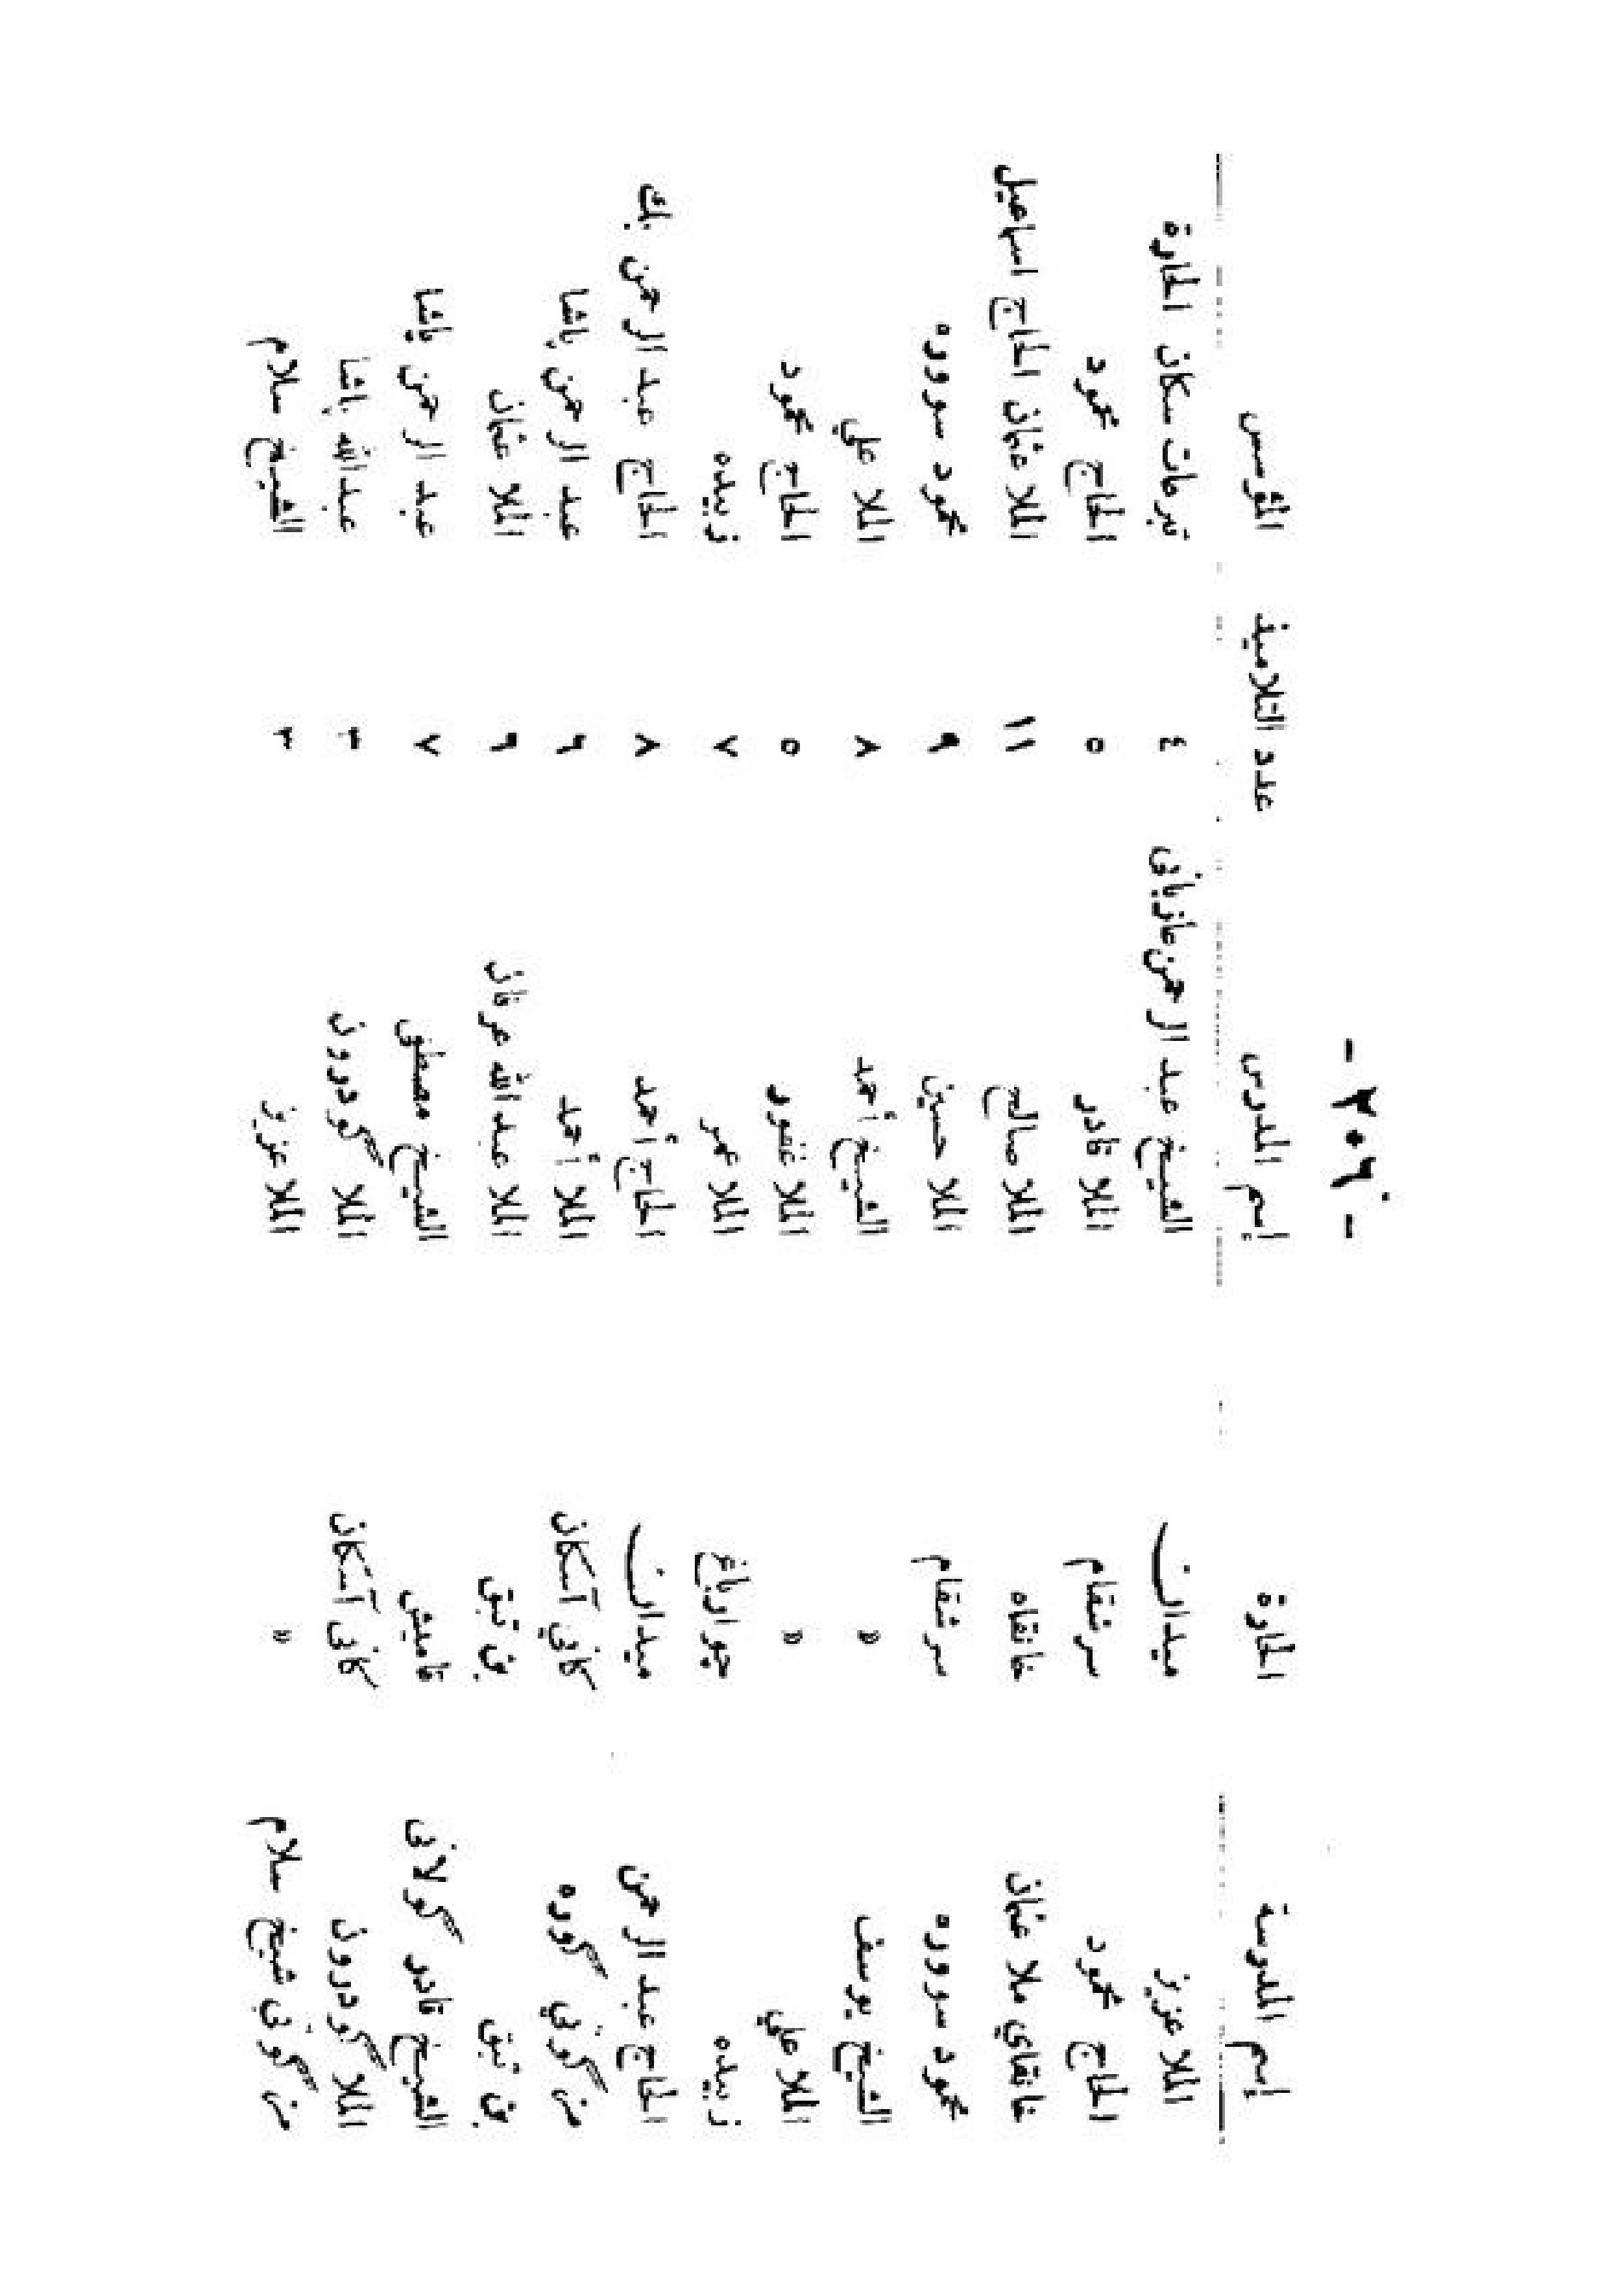 - ٢٠٦ -
إسم المدرسة الحارة إسم المدرس عدد التلاميذ المؤسس
الملا عزيز ميدان الشيخ عبد الرحمن عازباني ٤ تبرعات سكان الحارة
الحاج محمود سرشقام الملا قادر ٥ الحاج محمود
خانقاي ملا عثمان خانقاه الملا صالح ١١ الملا عثمان الحاج اسماعيل
محمود سووره سرشقام الملا حسين ٩ محمود سووره
الشيخ يوسف » الشيخ أحمد ٨ الملا علي
الملا علي » الملا غفور ٥ الحاج محمود
زبيده چوارباغ الملا عمر ٧ زبيده
الحاج عبد الرحمن ميدان الحاج أحمد ٨ الحاج عبد الرحمن بك
مزگوتي گوره كاني آسكان الملا أحمد ٦ عبد الرحمن پاشا
بن تبق بن تبق الملا عبد الله عرفان ٦ الملا عثمان
الشيخ قادر گولانى قاميش الشيخ مصطفى ٧ عبد الرحمن پاشا
الملا گودرون كانى آسكان الملا گودرون ٣ عبد الله پاشا
مزگوتي شيخ سلام » الملا عزيز ٣ الشيخ سلام